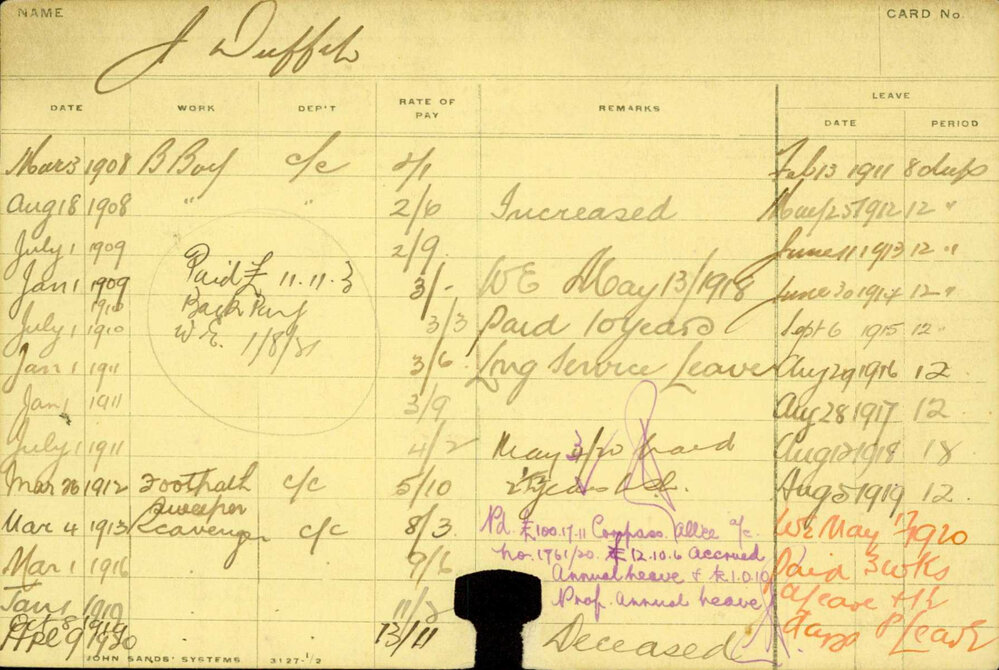 NAME
J Duffeh
CARD No.
DATE WORK DEP'T RATE OF PAY REMARKS LEAVE
DATE PERIOD
Mar 3 1908 B Boy c/c 2/1 Feb 13 1911 8 days
Aug 18 1908 " " 2/6 Increased May 25 1912 12 "
July 1 1909 2/9 June 11 1913 12 "
Jan 1 1909 1910 3/- WE May 13/1918 June 30 1914 12 "
Paid £ 11.11.3
Back Pay
W.E. 1/8/21
July 1 1910 3/3 Paid 10 years Sept 6 1915 12 "
Jan 1 1911 3/6 Long Service Leave Aug 29 1916 12
Jan 1 1911 3/9 Aug 28 1917 12
July 1 1911 4/2 May 3/20 Paid Aug 12 1918 18
Mar 26 1912 Footpath c/c 5/10 Aug 5 1919 12
Sweeper
Mar 4 1913 Scavenger c/c 8/3 Pd. £100.17.11 Compass. Allce a/c WE May 1920
Mar 1 1916 9/6 No. 1761/20. £12.10.6 Accrued Paid 3 wks
Annual Leave + £1.0.10
Jan 1 1919 Prof. Annual Leave
Oct 8 1919
Apl 9 1920 13/11 Deceased days P Leave
JOHN SANDS' SYSTEMS 3127-1/2